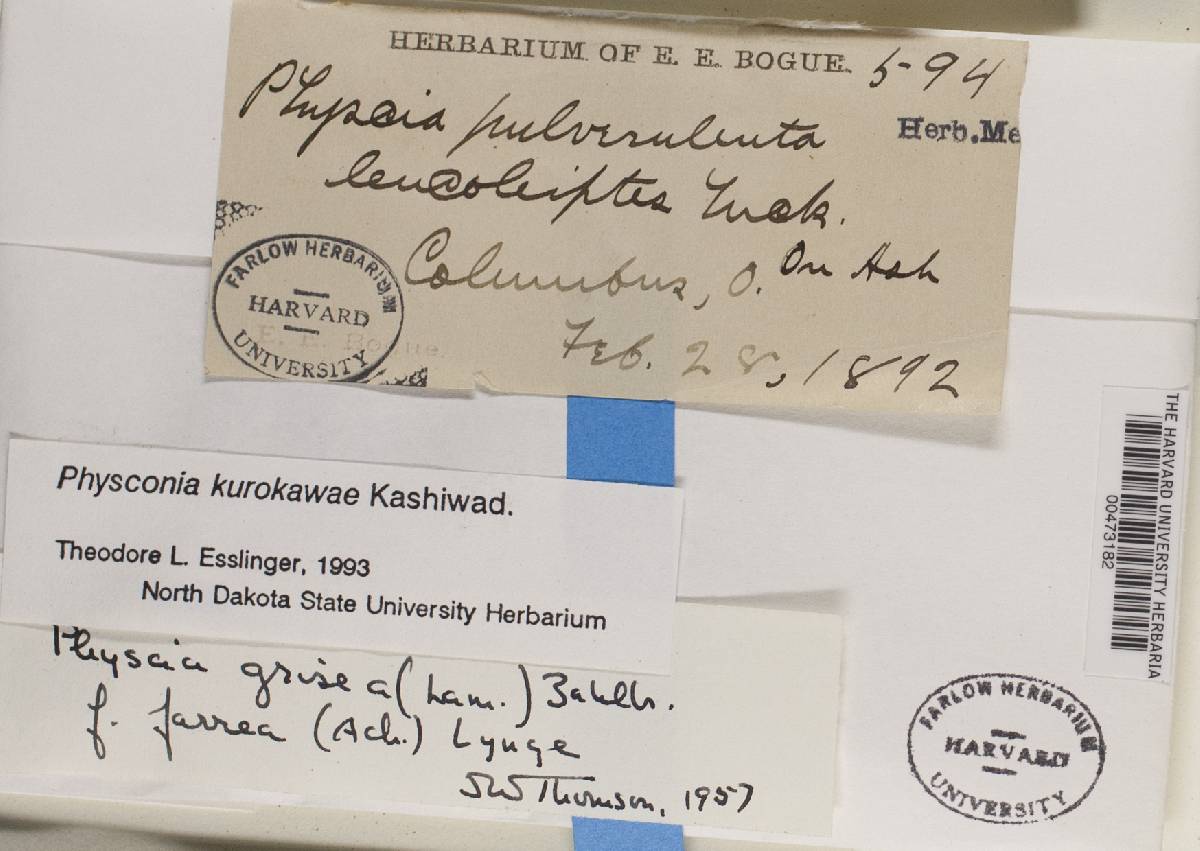 HERBARIUM OF E. E. BOGUE. 5-94
Physcia pulverulenta
Herb.Me
leucoleiptes Tuck.
Columbus, O. On Ash
Feb. 28, 1892
FARLOW HERBARIUM
HARVARD
UNIVERSITY
E. E. Bogue.
Physconia kurokawae Kashiwad.
Theodore L. Esslinger, 1993
North Dakota State University Herbarium
Physcia grisea (Lam.) Zahlbr.
f. farrea (Ach.) Lynge
JW Thomson, 1957
THE HARVARD UNIVERSITY HERBARIA
00473182
FARLOW HERBARIUM
HARVARD
UNIVERSITY